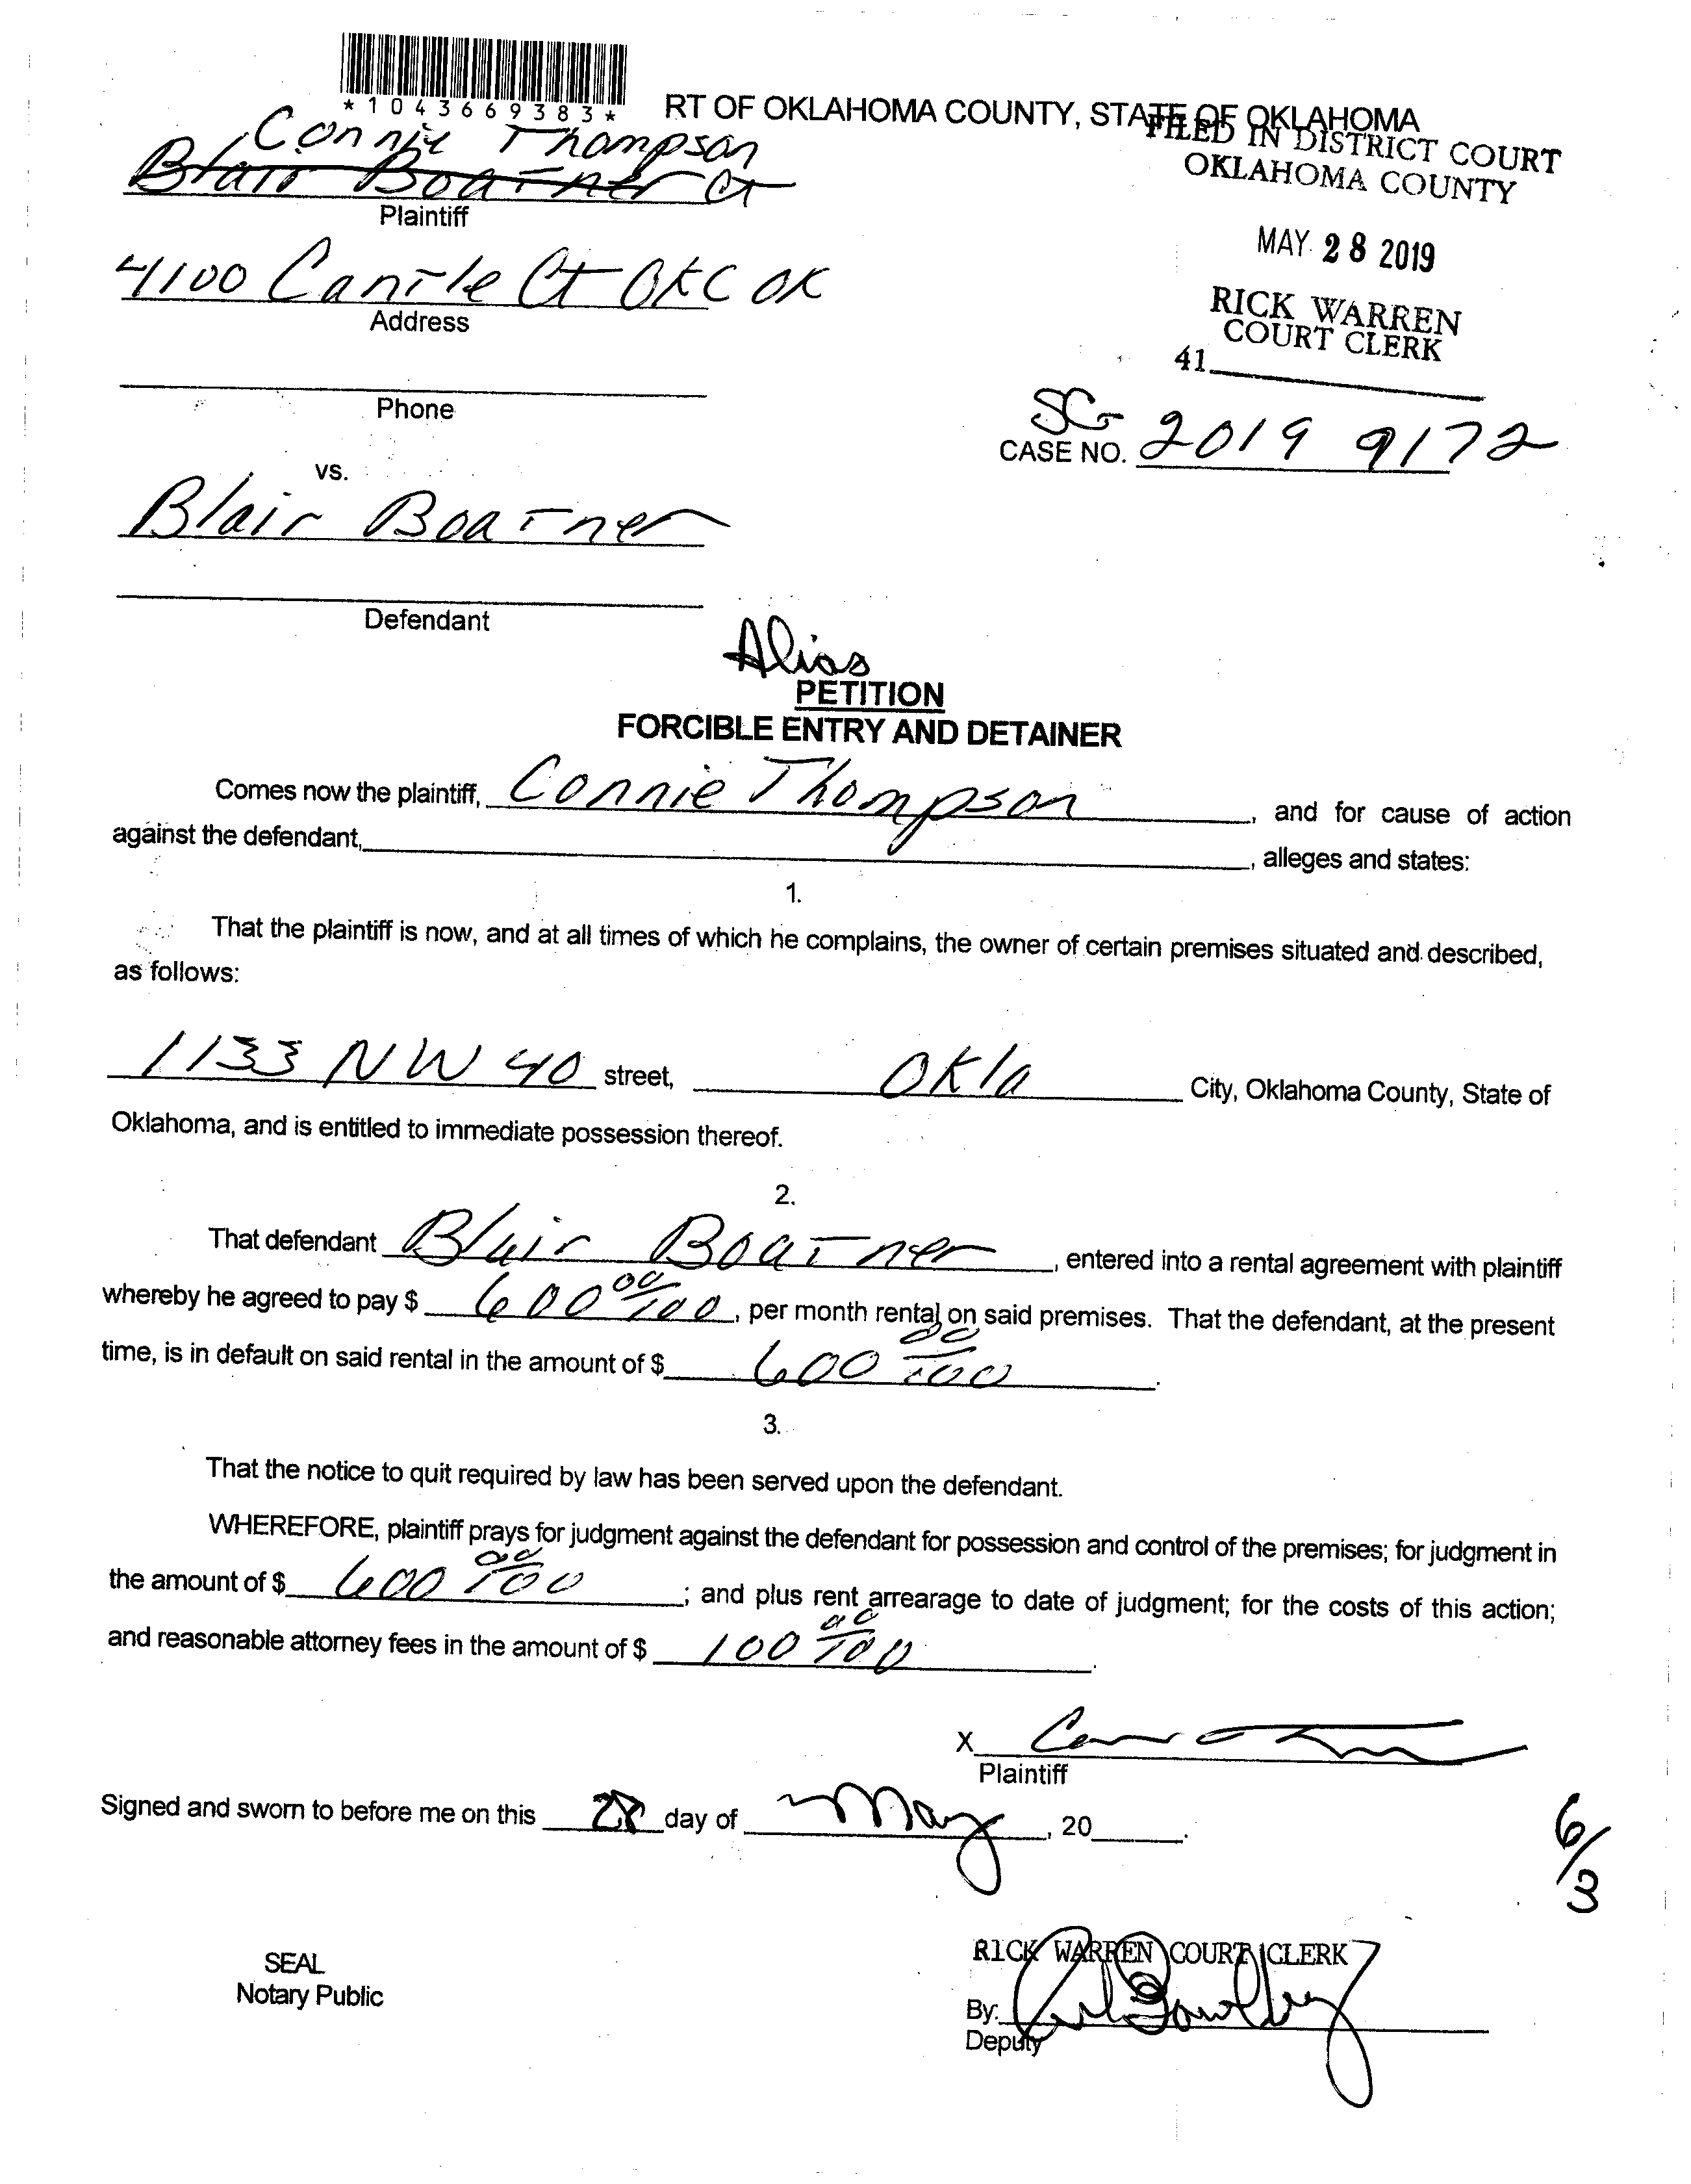 *1043669383*
RT OF OKLAHOMA COUNTY, STATE OF OKLAHOMA
FILED IN DISTRICT COURT
OKLAHOMA COUNTY
MAY 28 2019
RICK WARREN
COURT CLERK
41
Connie Thompson
Blair Boatner Ct
Plaintiff
4100 Canile Ct OKC OK
Address
Phone
SC-
CASE NO. 2019 9172
vs.
Blair Boatner
Defendant
Alias
PETITION
FORCIBLE ENTRY AND DETAINER
Comes now the plaintiff, Connie Thompson, and for cause of action
against the defendant, , alleges and states:
1.
That the plaintiff is now, and at all times of which he complains, the owner of certain premises situated and described,
as follows:
1133 NW 40 street, Okla City, Oklahoma County, State of
Oklahoma, and is entitled to immediate possession thereof.
2.
That defendant Blair Boatner, entered into a rental agreement with plaintiff
whereby he agreed to pay $ 600 00/100, per month rental on said premises. That the defendant, at the present
time, is in default on said rental in the amount of $ 600 00/100.
3.
That the notice to quit required by law has been served upon the defendant.
WHEREFORE, plaintiff prays for judgment against the defendant for possession and control of the premises; for judgment in
the amount of $ 600 00/100; and plus rent arrearage to date of judgment; for the costs of this action;
and reasonable attorney fees in the amount of $ 100 00/100.
X
Plaintiff
Signed and sworn to before me on this 28 day of May, 20 .
6/3
SEAL
Notary Public
RICK WARREN COURT CLERK
By:
Deputy